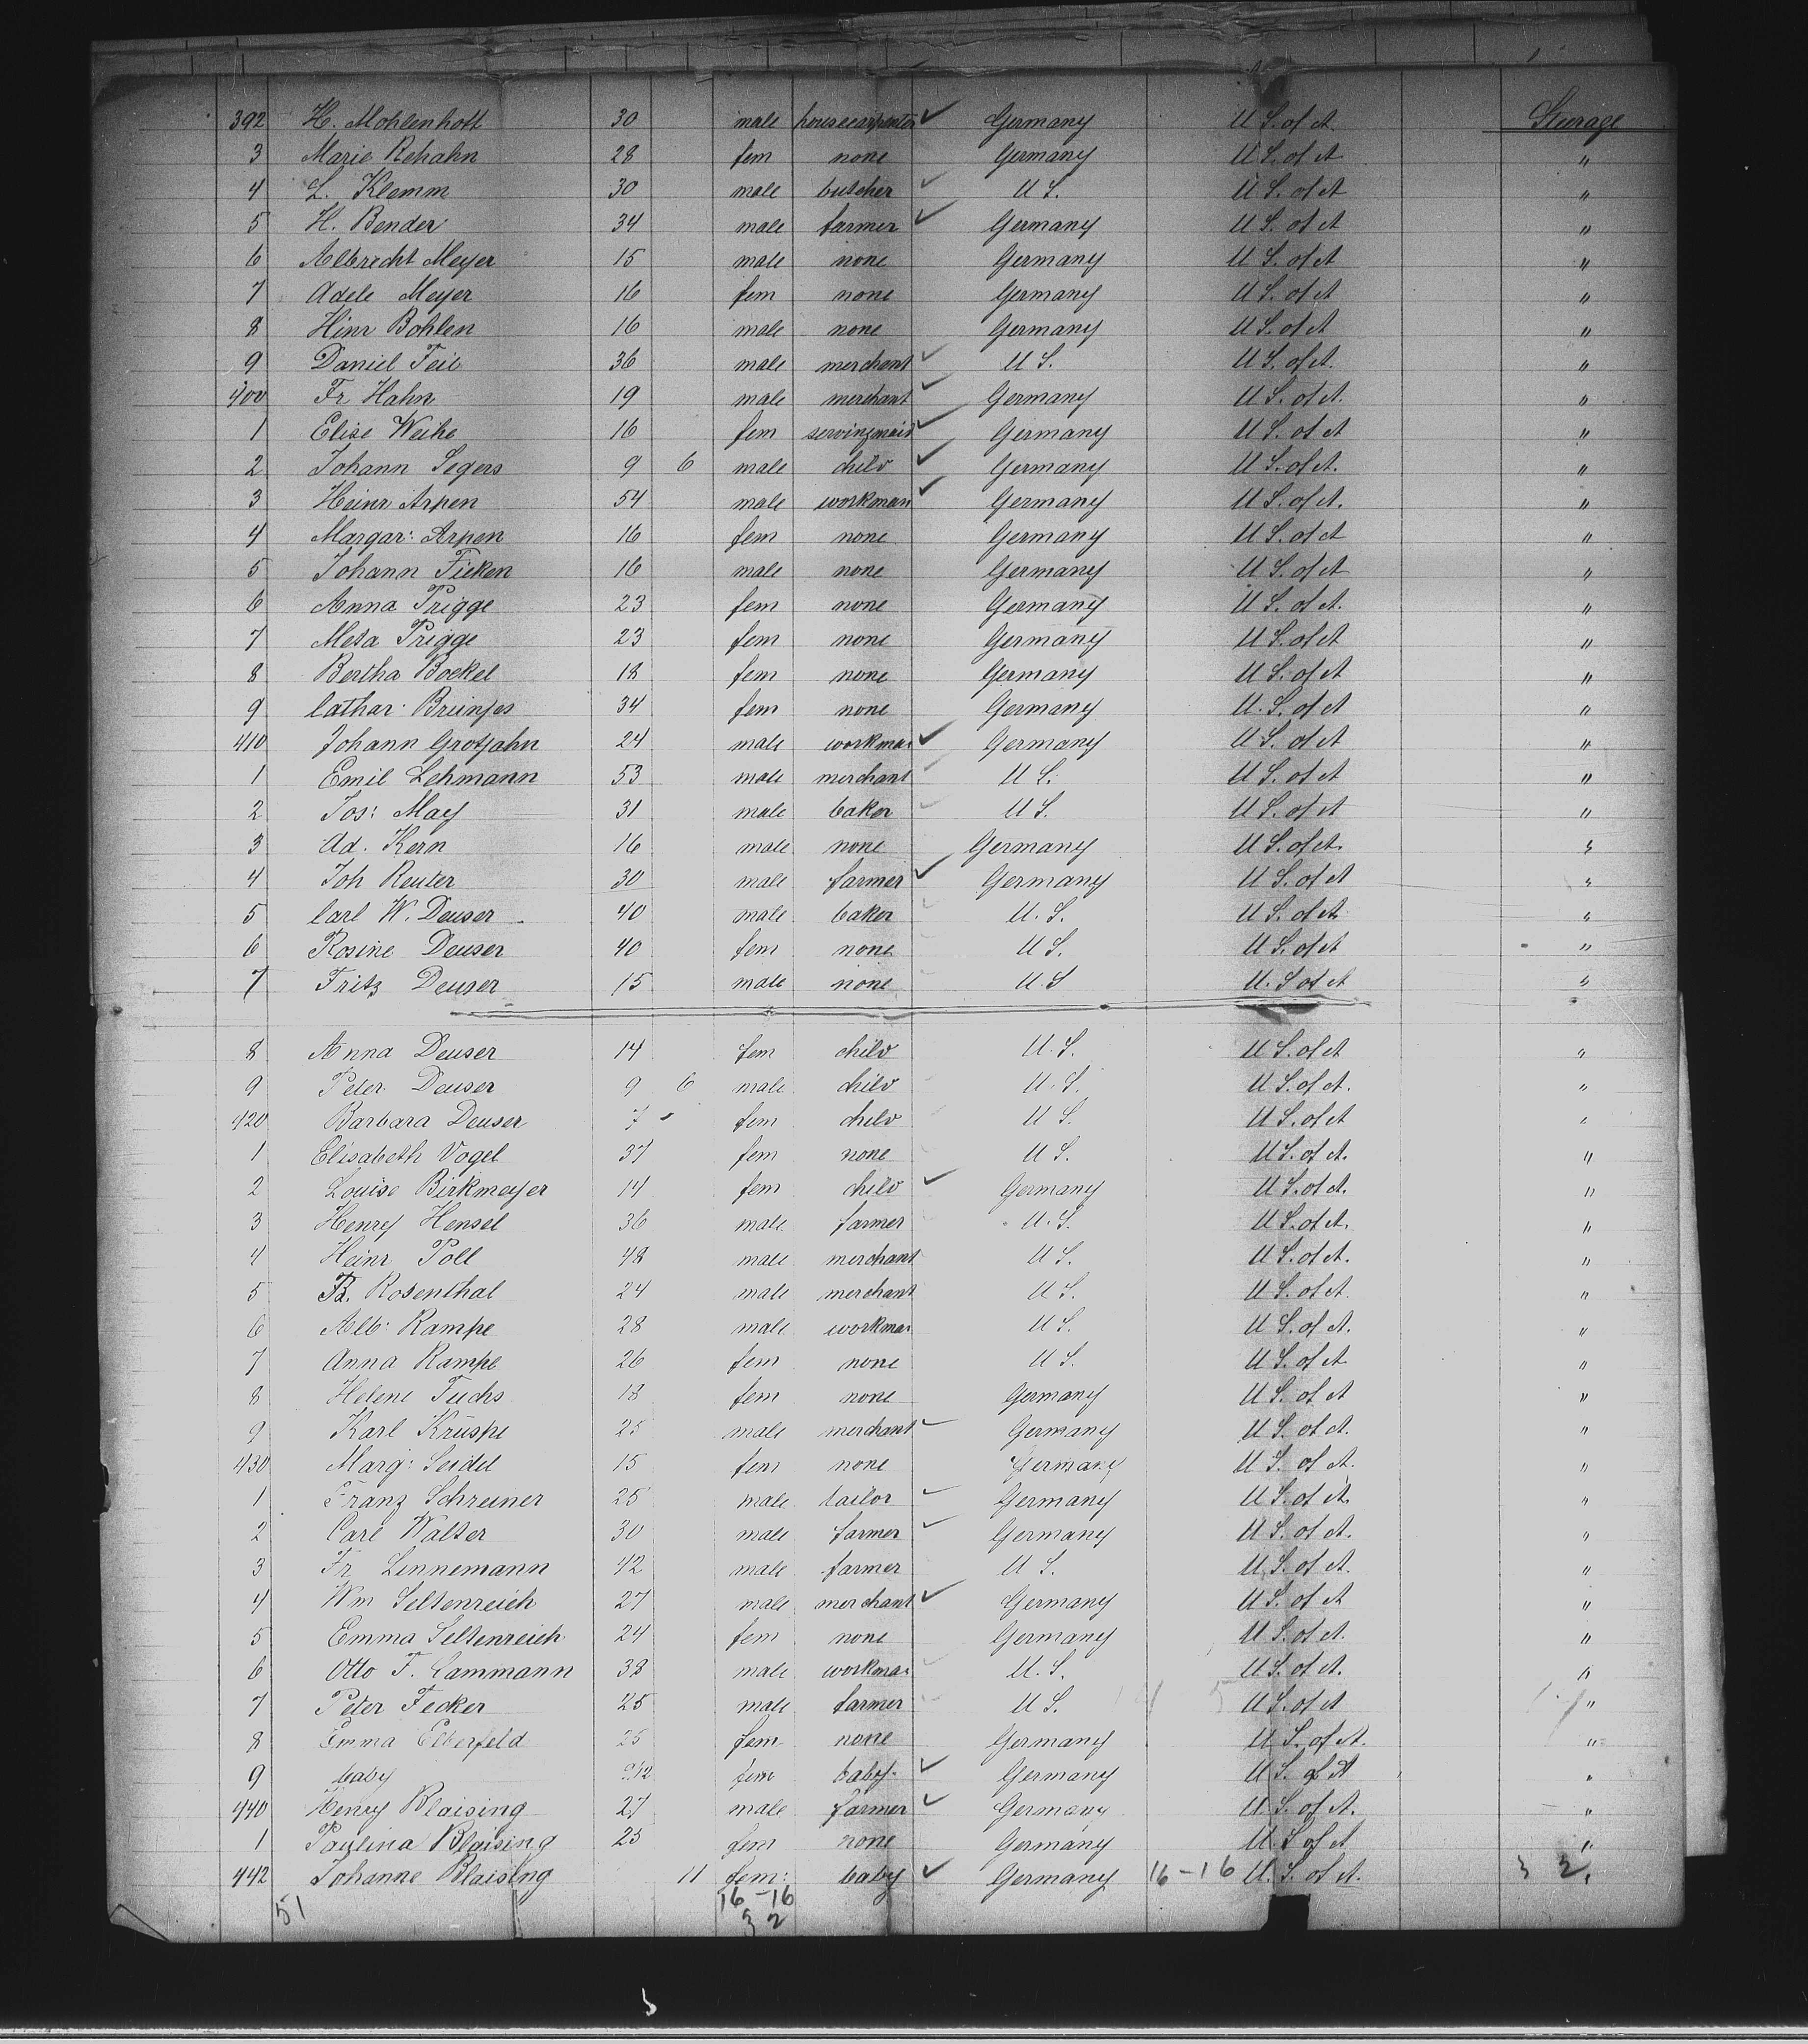 392 H. Mohlenhoff 30 male housecarpenter ✓ Germany U S. of A. Steerage
3 Marie Rehahn 28 fem none Germany U S. of A "
4 L. Klemm 30 male butcher ✓ U S. U. S. of A "
5 H. Bender 34 male farmer ✓ Germany U S. of A "
6 Albrecht Meyer 15 male none Germany U S. of A "
7 Adele Meyer 16 fem none Germany U S. of A "
8 Hinr Bohlen 16 male none Germany U S. of A "
9 Daniel Feil 36 male merchant ✓ U S. U S. of A. "
400 Fr Hahn 19 male merchant ✓ Germany U S. of A. "
1 Elise Weihe 16 fem servingmaid ✓ Germany U S. of A "
2 Johann Segers 9 6 male child ✓ Germany U S. of A. "
3 Heinr Arpen 54 male workman ✓ Germany U S. of A. "
4 Margar: Arpen 16 fem none Germany U S. of A "
5 Johann Ficken 16 male none Germany U S. of A "
6 Anna Prigge 23 fem none Germany U S. of A. "
7 Meta Prigge 23 fem none Germany U S. of A "
8 Bertha Boekel 18 fem none Germany U S. of A "
9 Cathar: Brünjes 34 fem none Germany U. S. of A "
410 Johann Grotjahn 24 male workman ✓ Germany U S. of A "
1 Emil Lehmann 53 male merchant ✓ U S. U S. of A "
2 Jos: May 31 male baker ✓ U S. U S. of A "
3 Ad. Kern 16 male none Germany U S. of A. "
4 Joh Reuter 30 male farmer ✓ Germany U S. of A "
5 Carl W. Deuser 40 male baker ✓ U. S. U S. of A "
6 Rosine Deuser 40 fem none U S. U S. of A "
7 Fritz Deuser 15 male none U. S U. S of A "
8 Anna Deuser 14 fem child U. S. U S. of A "
9 Peter Deuser 9 6 male child U. S. U S. of A. "
420 Barbara Deuser 7 fem child U S. U S. of A "
1 Elisabeth Vogel 37 fem none U S. U S. of A. "
2 Louise Birkmeyer 14 fem child ✓ Germany U S. of A. "
3 Henry Hensel 36 male farmer U. S. U S. of A. "
4 Heinr Poll 48 male merchant U S. U S. of A. "
5 B. Rosenthal 24 male merchant U S. U S. of A. "
6 Alb: Rampe 28 male workman U S. U S. of A. "
7 Anna Rampe 26 fem none U S. U S. of A "
8 Helene Fuchs 18 fem none Germany U S. of A "
9 Karl Kruspe 25 male merchant ✓ Germany U S. of A. "
430 Marg: Seidel 15 fem none Germany U S. of A. "
1 Franz Schreiner 25 male tailor ✓ Germany U S. of A. "
2 Carl Walter 30 male farmer ✓ Germany U S. of A. "
3 Fr Linnemann 42 male farmer U S. U S. of A. "
4 Wm Seltenreich 27 male merchant ✓ Germany U S. of A "
5 Emma Seltenreich 24 fem none Germany U S. of A. "
6 Otto F. Cammann 38 male workman U. S. U S. of A. "
7 Peter Fecker 25 male farmer U S. U S. of A "
8 Emma Elberfeld 25 fem none Germany U S. of A. "
9 baby fem baby ✓ Germany U S. of A "
440 Henry Blaising 27 male farmer ✓ Germany U. S. of A. "
1 Paulina Blaising 25 fem none Germany U. S of A "
442 Johanne Blaising 11 fem: baby ✓ Germany 16-16 U. S. of A. 3 2
51 16-16
3 2